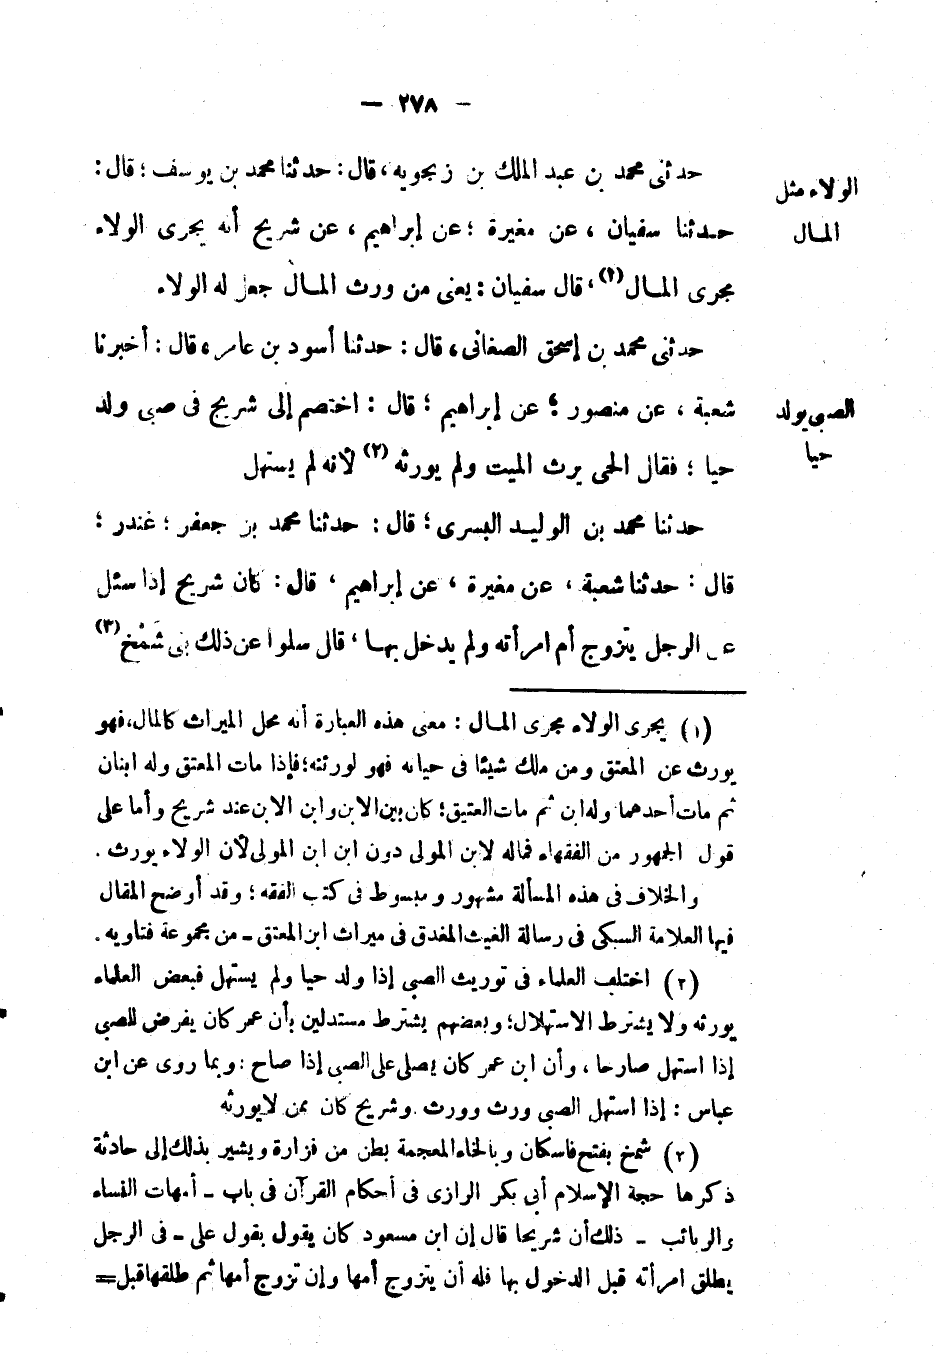 — ٢٧٨ —
حدثنى محمد بن عبد الملك بن زنجويه، قال: حدثنا محمد بن يوسف؛ قال:
الولاء مثل
المـال
حـدثنا سفيان ، عن مغيرة ؛ عن إبراهيم ، عن شريح أنه يجرى الولاء
مجرى المـال(١)، قال سفيان : يعنى من ورث المـال جعل له الولاء.
حدثنى محمد بن إسحق الصغانى، قال : حدثنا أسود بن عامر، قال : أخبرنا
شعبة ، عن منصور ؛ عن إبراهيم ؛ قال : اختصم إلى شريح فى صبى ولد
الصبى يولد
حيا
حيا ؛ فقال الحى يرث الميت ولم يورثه (٢) لأنه لم يستهل
حدثنا محمد بن الوليـد البسرى؛ قال : حدثنا محمد بن جعفر ؛ غندر ؛
قال : حدثنا شعبة ، عن مغيرة ، عن إبراهيم ، قال : كان شريح إذا سئل
عن الرجل يتزوج أم امرأته ولم يدخل بهـا ، قال سلوا عن ذلك بنى شَمْخ(٣)
(١) يجرى الولاء مجرى المـال : معنى هذه العبارة أنه محل الميراث كالمال، فهو
يورث عن المعتق ومن ملك شيئا فى حياته فهو لورثته؛ فإذا مات المعتق وله ابنان
ثم مات أحدهما وله ابن ثم مات العتيق؛ كان بين الابن وابن الابن عند شريح وأما على
قول الجمهور من الفقهاء فماله لابن المولى دون ابن ابن المولى لأن الولاء يورث .
والخلاف فى هذه المسألة مشهور ومبسوط فى كتب الفقه ؛ وقد أوضح المقال
فيها العلامة السبكى فى رسالة الغيث المغدق فى ميراث ابن المعتق ــ من مجموعة فتاويه .
(٢) اختلف العلماء فى توريث الصبى إذا ولد حيا ولم يستهل فبعض العلماء
يورثه ولا يشترط الاستهلال؛ وبعضهم يشترط مستدلين بأن عمر كان يفرض للصبى
إذا استهل صارخا ، وأن ابن عمر كان يصلى على الصبى إذا صاح : وبما روى عن ابن
عباس : إذا استهل الصبى ورث وورث وشريح كان ممن لا يورثه
(٢) شمخ بفتح فاسكان وبالخاء المعجمة بطن من فزارة ويشير بذلك إلى حادثة
ذكرها حجة الإسلام أبى بكر الرازى فى أحكام القرآن فى باب ــ أمهات النساء
والربائب ــ ذلك أن شريحا قال إن ابن مسعود كان يقول بقول على ــ فى الرجل
يطلق امرأته قبل الدخول بها فله أن يتزوج أمها وإن تزوج أمها ثم طلقها قبل=